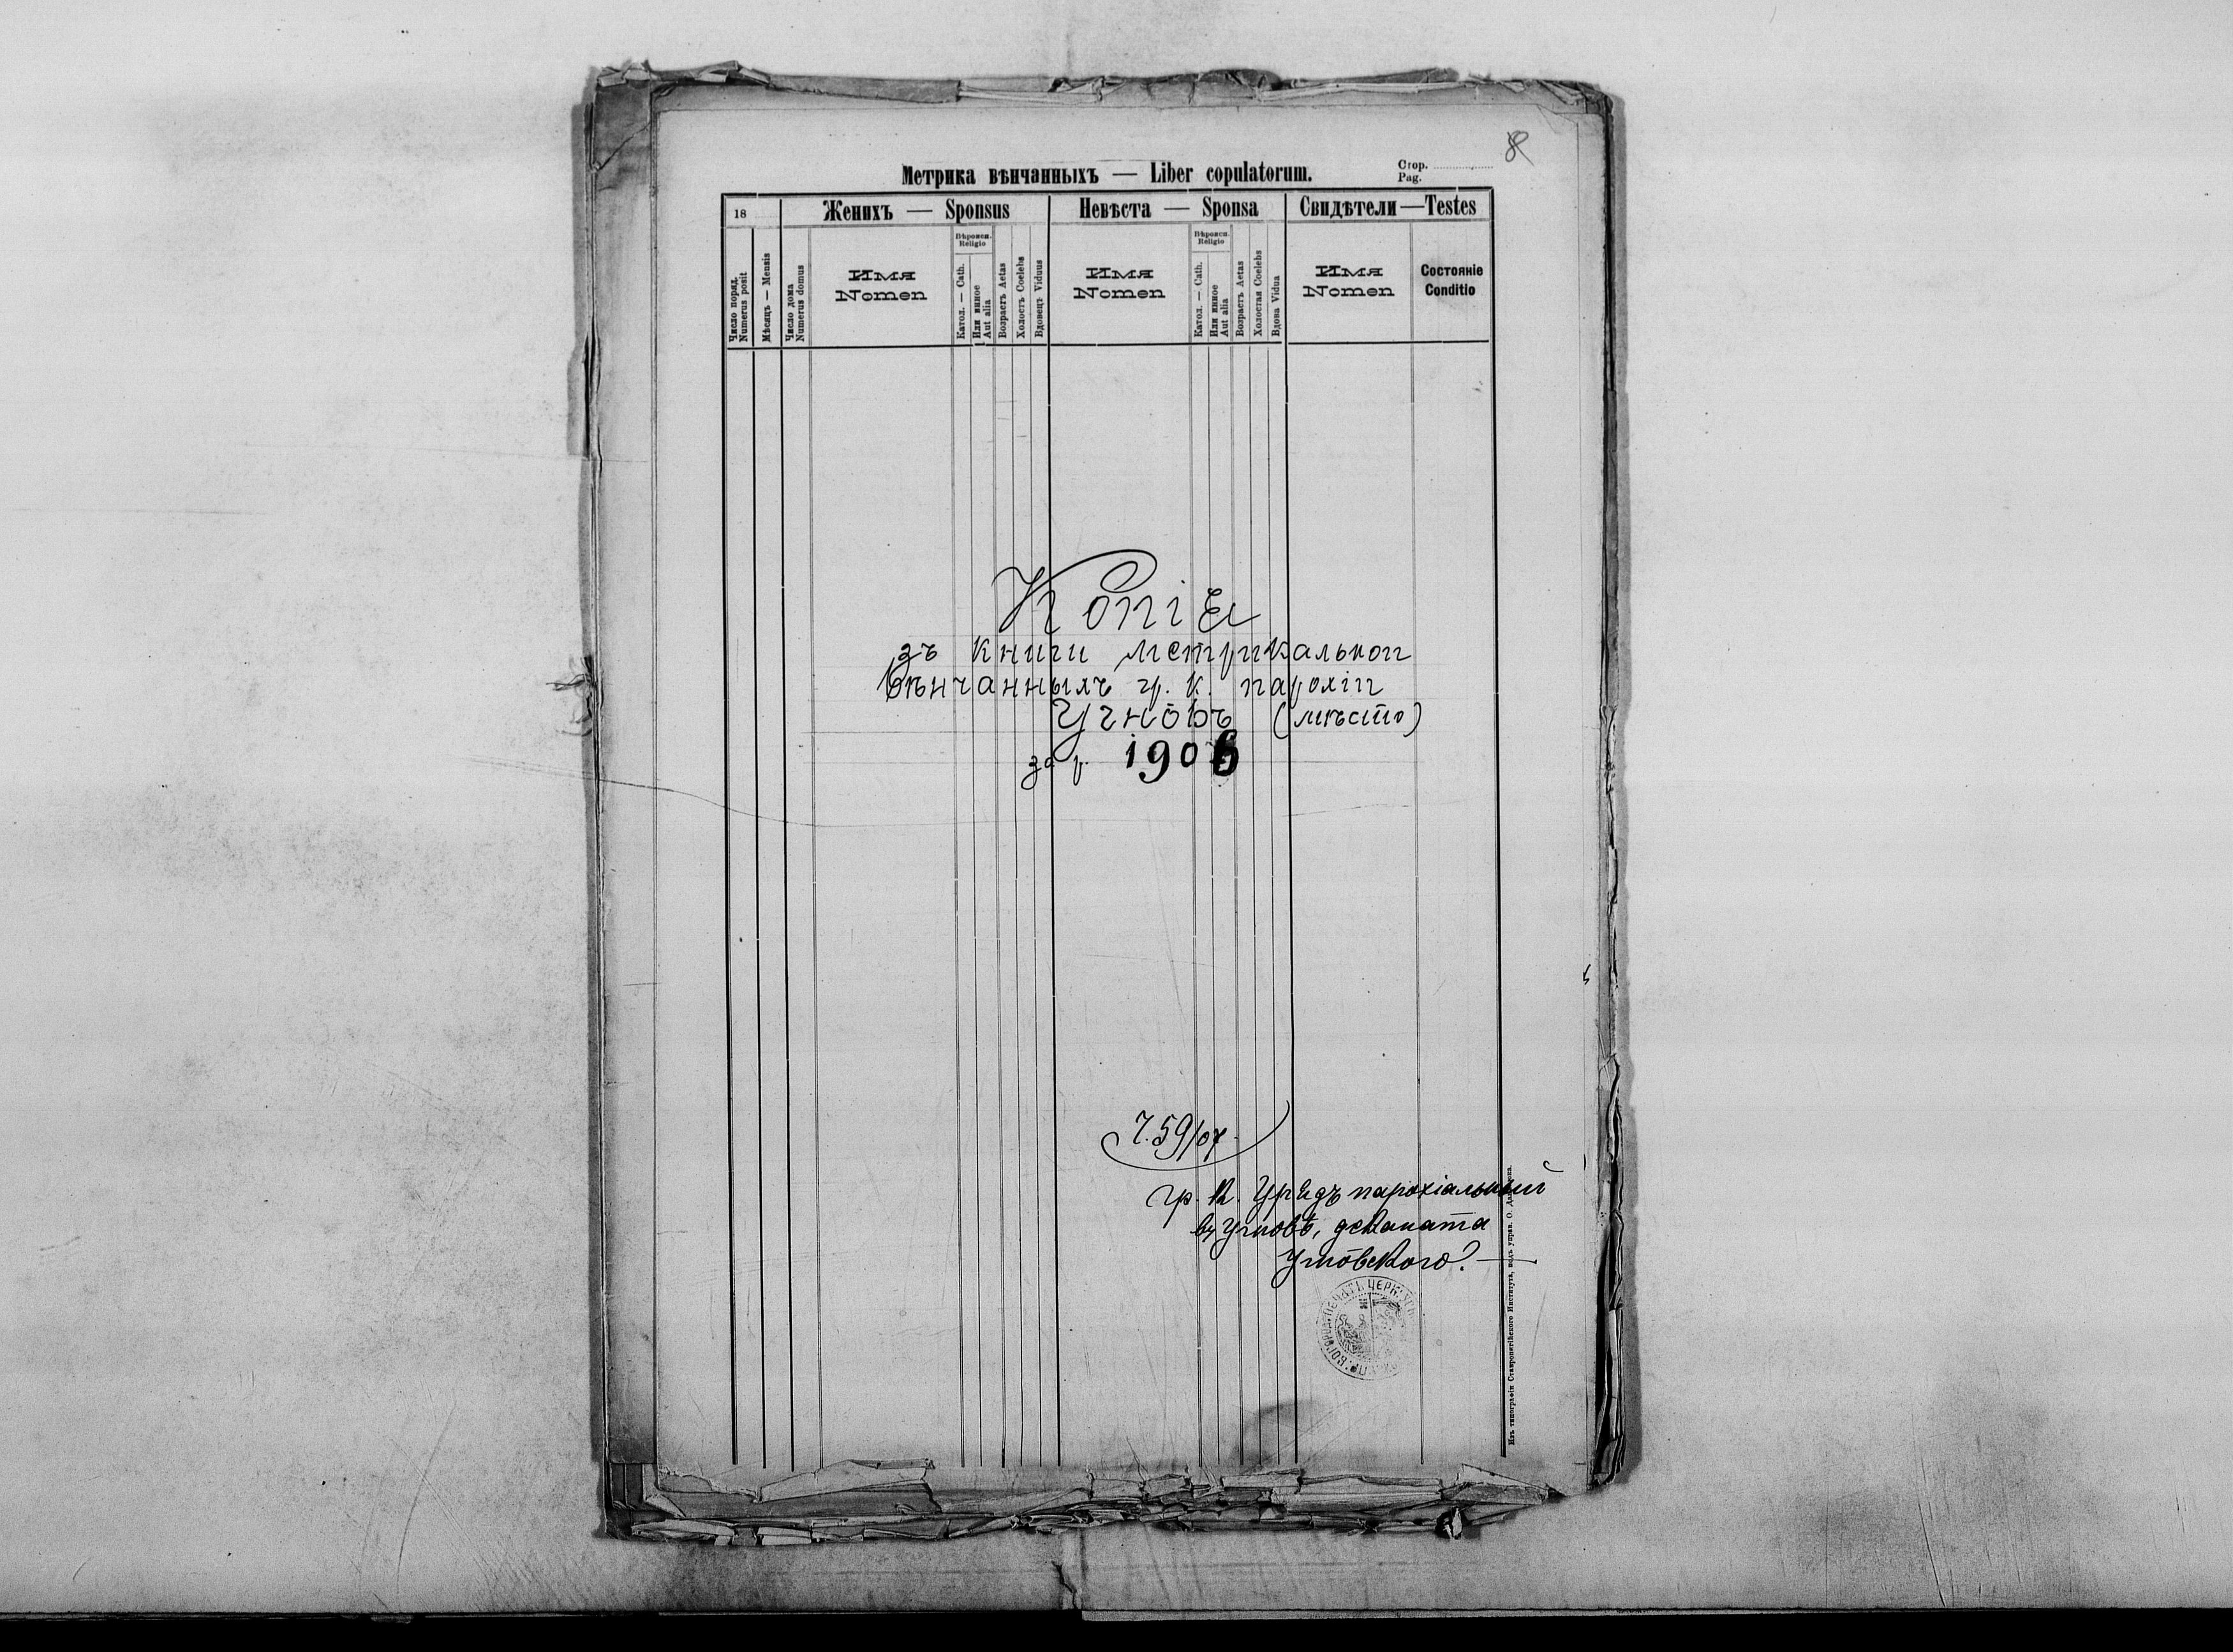 8
Метрика вѣнчанныхъ — Liber copulatorum.
Стор.
Pag.
18
Женихъ — Sponsus
Невѣста — Sponsa
Свидѣтели — Testes
Число поряд.
Numerus posit
Мѣсяць — Mensis
Число дома
Numerus domus
Имя
Nomen
Вѣроисп.
Religio
Катол. — Cath.
Или инное
Aut alia
Возрастъ Aetas
Холостъ Coelebs
Вдовецъ Viduus
Имя
Nomen
Вѣроисп.
Religio
Катол. — Cath.
Или инное
Aut alia
Возрастъ Aetas
Холостая Coelebs
Вдова Vidua
Имя
Nomen
Состояніе
Conditio
Копія
зъ книги метрикальнои
Вѣнчанныхъ гр. к. парохіи
Угнôвъ (мѣсто)
за р. 1906
Ч. 59/07.
Гр. к. Урядъ парохіальный
въ Угновѣ, деканата
Угнôвского. —
Изъ типографіи Ставропигійского Института, подъ управ. О.